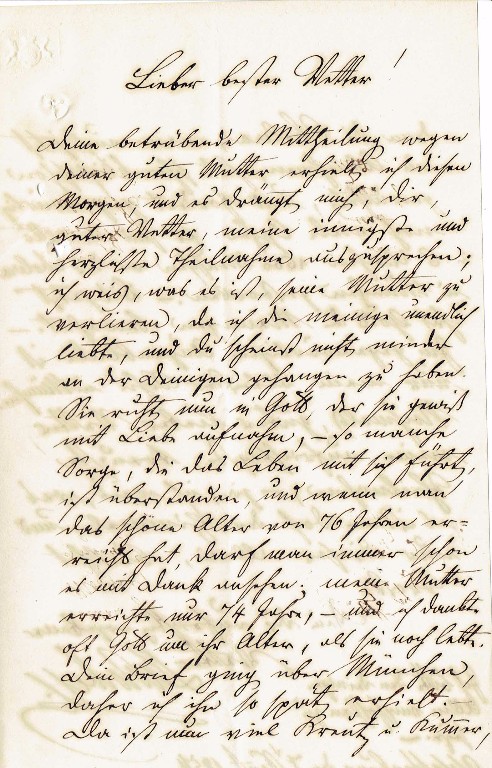 Lieber bester Vetter!
Deine betrübende Mittheilung wegen
deiner guten Mutter erhielt ich diesen
Morgen, und es drängt mich, dir,
guter Vetter, meine innigste und
herzlichste Theilnahme auszusprechen;
ich weis, was es ist, seine Mutter zu
verlieren, da ich die meinige unendlich
liebte, und du scheinst nicht minder
an der Deinigen gehangen zu haben.
Sie ruht nun in Gott, der sie gewiß
mit Liebe aufnahm, – so manche
Sorge, die das Leben mit sich führt,
ist überstanden, und wenn man
das schöne Alter von 76 Jahren er=
reicht hat, darf man immer schon
es mit Dank ansehen. meine Mutter
erreichte nur 74 Jahre, – und ich dankte
oft Gott um ihr Alter, als sie noch lebte.
Dein Brief ging über München,
daher ich ihn so spät erhielt. –
Da ist nun viel Kreutz u. Kummer,